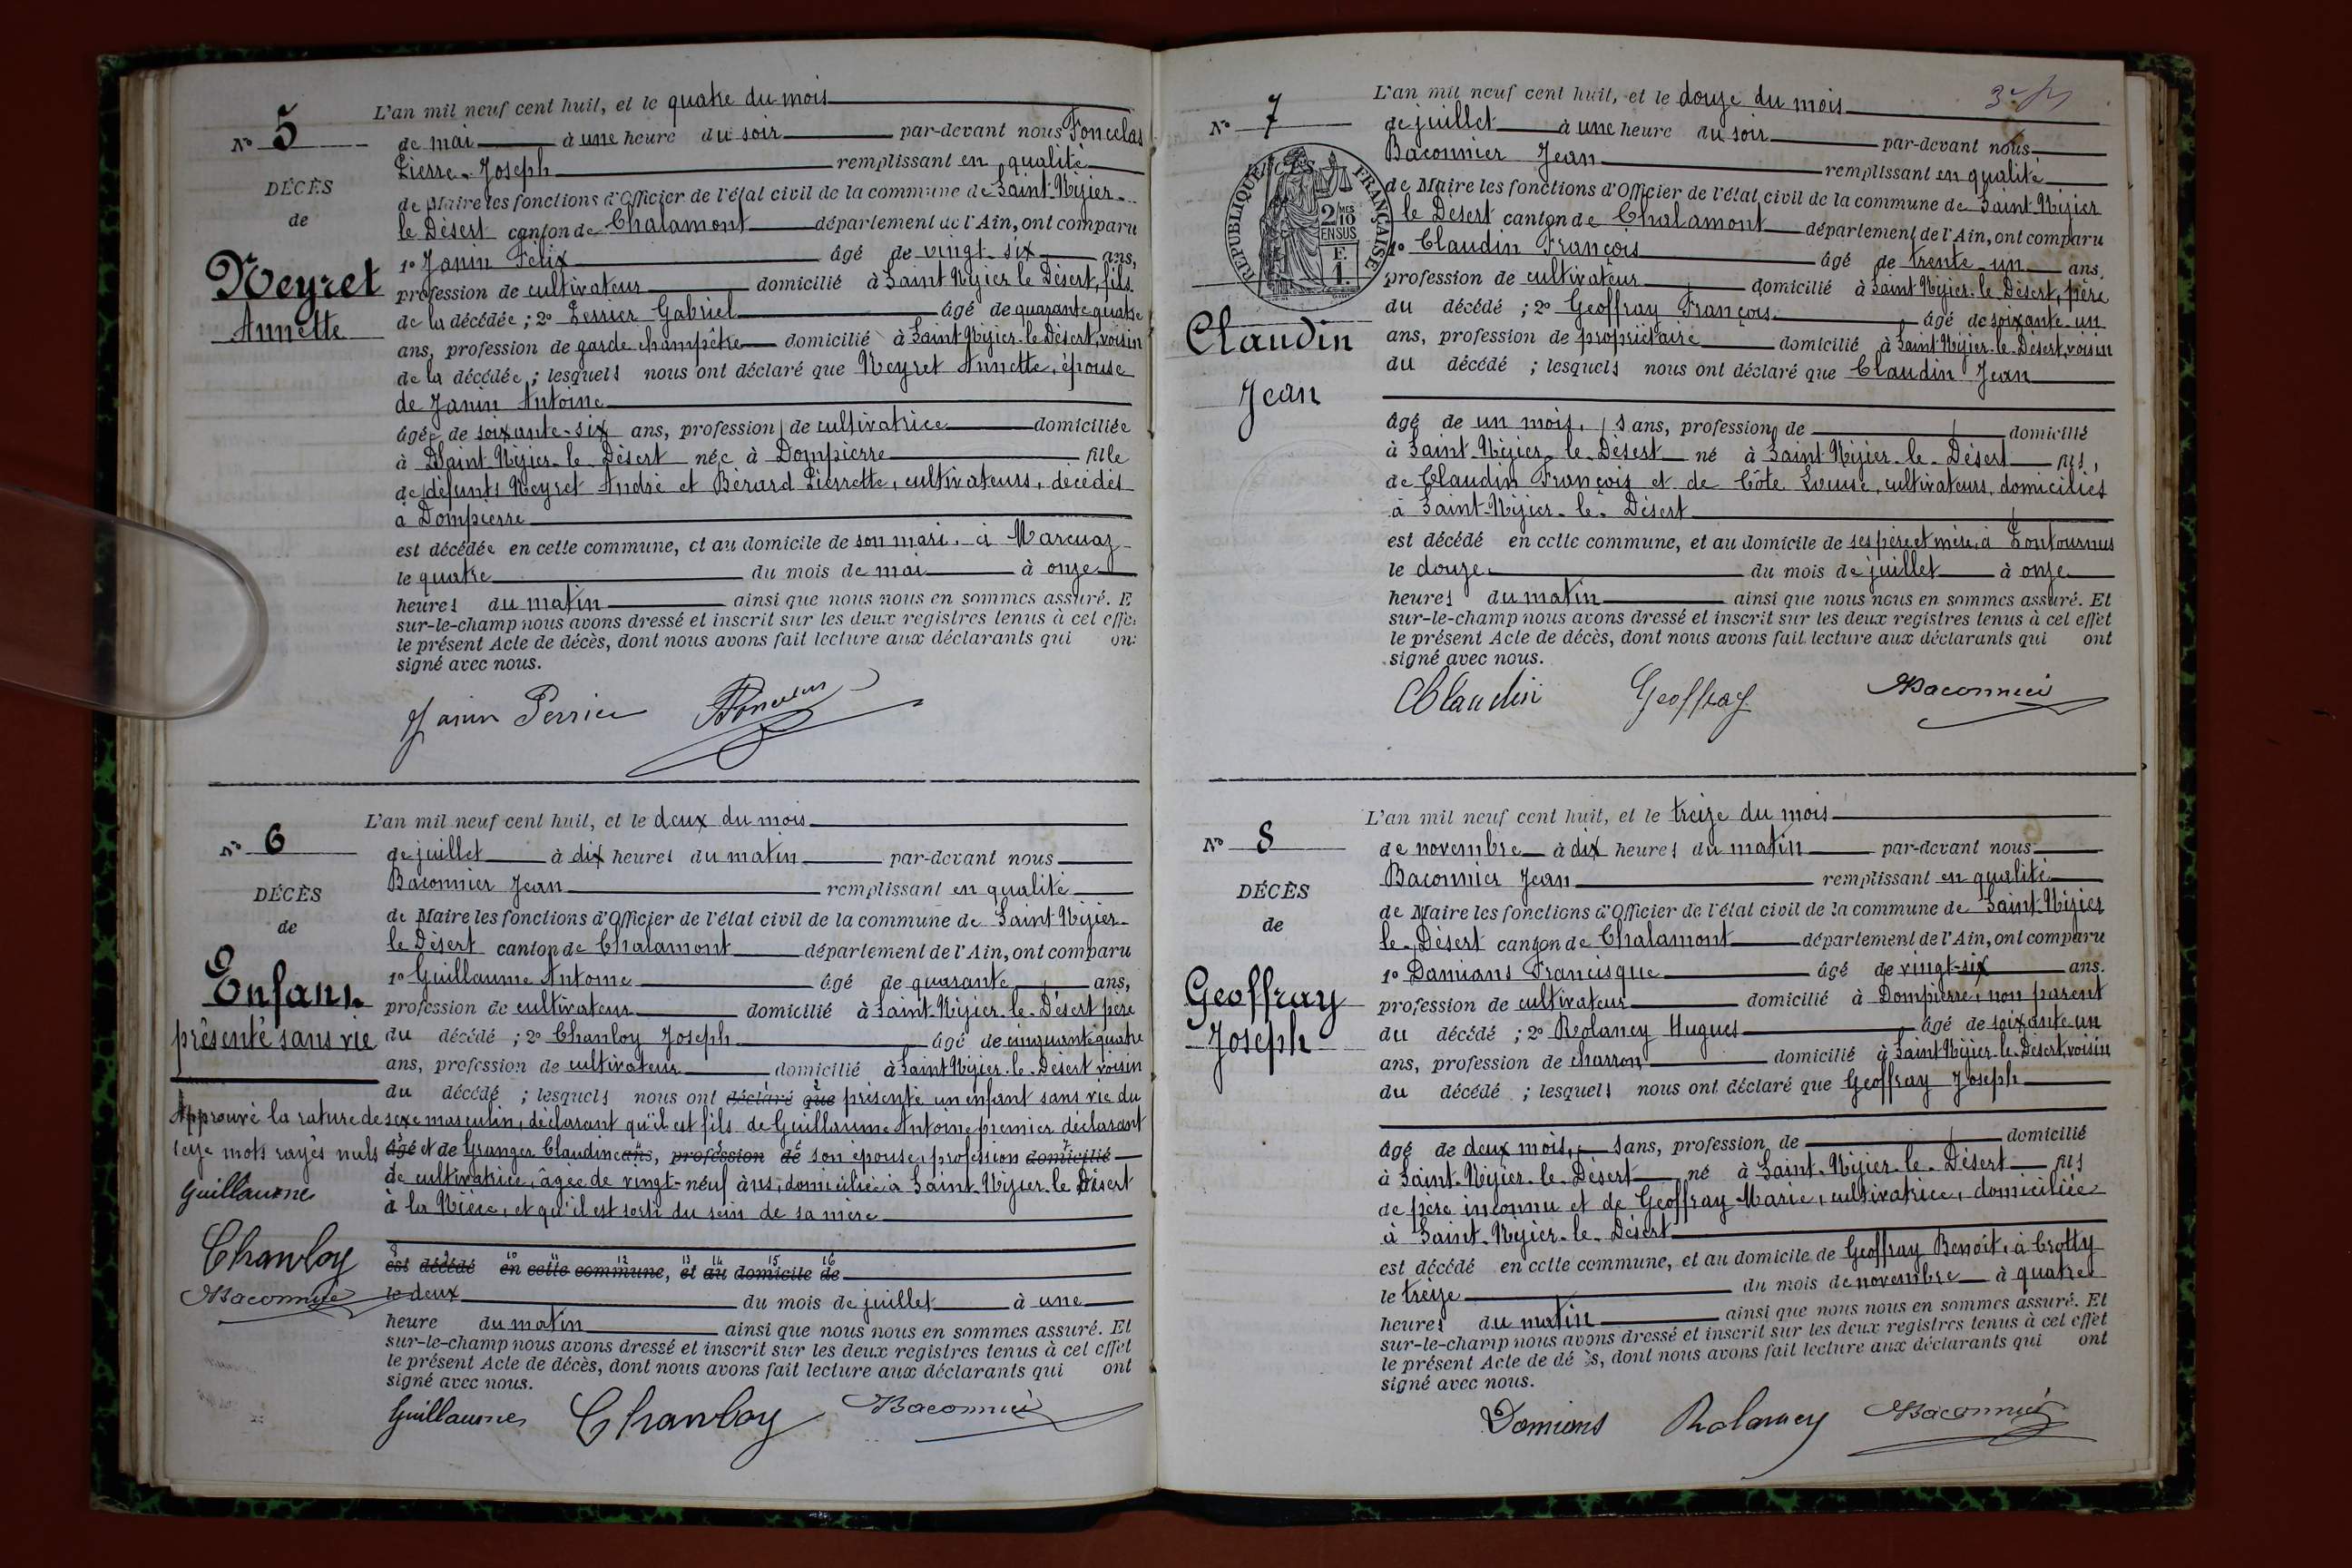 L'an mil neuf cent huit, et le quatre du mois
N° 5
de mai à une heure du soir par-devant nous Foncelas
Pierre-Joseph remplissant en qualité
DÉCÈS
de Maire les fonctions d'Officier de l'état civil de la commune de Saint-Nizier-
de
le Désert canton de Chalamont département de l'Ain, ont comparu
1° Janin Félix âgé de vingt-six ans,
Neyret
profession de cultivateur domicilié à Saint Nizier le Désert, fils
Annette
de la décédée ; 2° Perrier Gabriel âgé de quarante quatre
ans, profession de garde champêtre domicilié à Saint Nizier-le-Désert, voisin
de la décédée ; lesquels nous ont déclaré que Neyret Annette, épouse
de Janin Antoine
âgée de soixante-six ans, profession de cultivatrice domiciliée
à Saint-Nizier-le-Désert née à Dompierre fille
de défunts Neyret André et Bérard Pierrette, cultivateurs, décédés
à Dompierre
est décédée en cette commune, et au domicile de son mari, à Marcuaz
le quatre du mois de mai à onze
heures du matin ainsi que nous nous en sommes assuré. E
sur-le-champ nous avons dressé et inscrit sur les deux registres tenus à cet effe
le présent Acte de décès, dont nous avons fait lecture aux déclarants qui on
signé avec nous.
Janin Perrier Foncelas
L'an mil neuf cent huit, et le deux du mois
N° 6
de juillet à dix heures du matin par-devant nous
Baconnier Jean remplissant en qualité
DÉCÈS
de Maire les fonctions d'Officier de l'état civil de la commune de Saint-Nizier-
de
le Désert canton de Chalamont département de l'Ain, ont comparu
1° Guillaume Antoine âgé de quarante ans,
Enfant
profession de cultivateur domicilié à Saint-Nizier-le-Désert père
présenté sans vie
du décédé ; 2° Chanloy Joseph âgé de cinquante quatre
ans, profession de cultivateur domicilié à Saint Nizier-le-Désert voisin
du décédé ; lesquels nous ont déclaré que présenté un enfant sans vie du
Approuvé la rature de
sexe masculin, déclarant qu'il est fils de Guillaume Antoine premier déclarant
seize mots rayés nuls
âgé et de Granger Claudine ans, profession de son épouse, profession domicilié
de cultivatrice, âgée de vingt-neuf ans, domiciliée à Saint-Nizier-le Désert
Guillaume
à la Nière, et qu'il est sorti du sein de sa mère
Chanloy
est décédé en cette commune, et au domicile de
Baconnier
le deux du mois de juillet à une
heure du matin ainsi que nous nous en sommes assuré. Et
sur-le-champ nous avons dressé et inscrit sur les deux registres tenus à cet effet
le présent Acte de décès, dont nous avons fait lecture aux déclarants qui ont
signé avec nous.
Guillaume Chanloy Baconnier
L'an mil neuf cent huit, et le douze du mois
N° 7
de juillet à une heure du soir par-devant nous
Baconnier Jean remplissant en qualité
RÉPUBLIQUE FRANÇAISE
2/10 MES EN SUS
F. 1.
de Maire les fonctions d'Officier de l'état civil de la commune de Saint-Nizier
le Désert canton de Chalamont département de l'Ain, ont comparu
1° Claudin François âgé de trente-un ans,
profession de cultivateur domicilié à Saint Nizier-le Désert, père
Claudin
du décédé ; 2° Geoffray François âgé de soixante-un
ans, profession de propriétaire domicilié à Saint-Nizier-le-Désert, voisin
du décédé ; lesquels nous ont déclaré que Claudin Jean
Jean
âgé de un mois, ans, profession de domicilié
à Saint-Nizier-le-Désert né à Saint-Nizier-le-Désert fils
de Claudin François et de Côte Louise, cultivateurs, domiciliés
à Saint-Nizier-le-Désert
est décédé en cette commune, et au domicile de ses père et mère, à Pontournus
le douze du mois de juillet à onze
heures du matin ainsi que nous nous en sommes assuré. Et
sur-le-champ nous avons dressé et inscrit sur les deux registres tenus à cet effet
le présent Acte de décès, dont nous avons fait lecture aux déclarants qui ont
signé avec nous.
Claudin Geoffray Baconnier
L'an mil neuf cent huit, et le treize du mois
N° 8
de novembre à dix heures du matin par-devant nous
Baconnier Jean remplissant en qualité
DÉCÈS
de Maire les fonctions d'Officier de l'état civil de la commune de Saint-Nizier
de
le-Désert canton de Chalamont département de l'Ain, ont comparu
1° Damians Francisque âgé de vingt-six ans,
Geoffray
profession de cultivateur domicilié à Dompierre, non parent
Joseph
du décédé ; 2° Rolancy Hugues âgé de soixante un
ans, profession de charron domicilié à Saint Nizier-le-Désert, voisin
du décédé ; lesquels nous ont déclaré que Geoffray Joseph
âgé de deux mois, ans, profession de domicilié
à Saint-Nizier-le-Désert né à Saint-Nizier-le-Désert fils
de père inconnu et de Geoffray Marie, cultivatrice, domiciliée
à Saint-Nizier-le-Désert
est décédé en cette commune, et au domicile de Geoffray Benoît, à Crotty
le treize du mois de novembre à quatre
heures du matin ainsi que nous nous en sommes assuré. Et
sur-le-champ nous avons dressé et inscrit sur les deux registres tenus à cet effet
le présent Acte de dé s, dont nous avons fait lecture aux déclarants qui ont
signé avec nous.
Damians Rolancy Baconnier